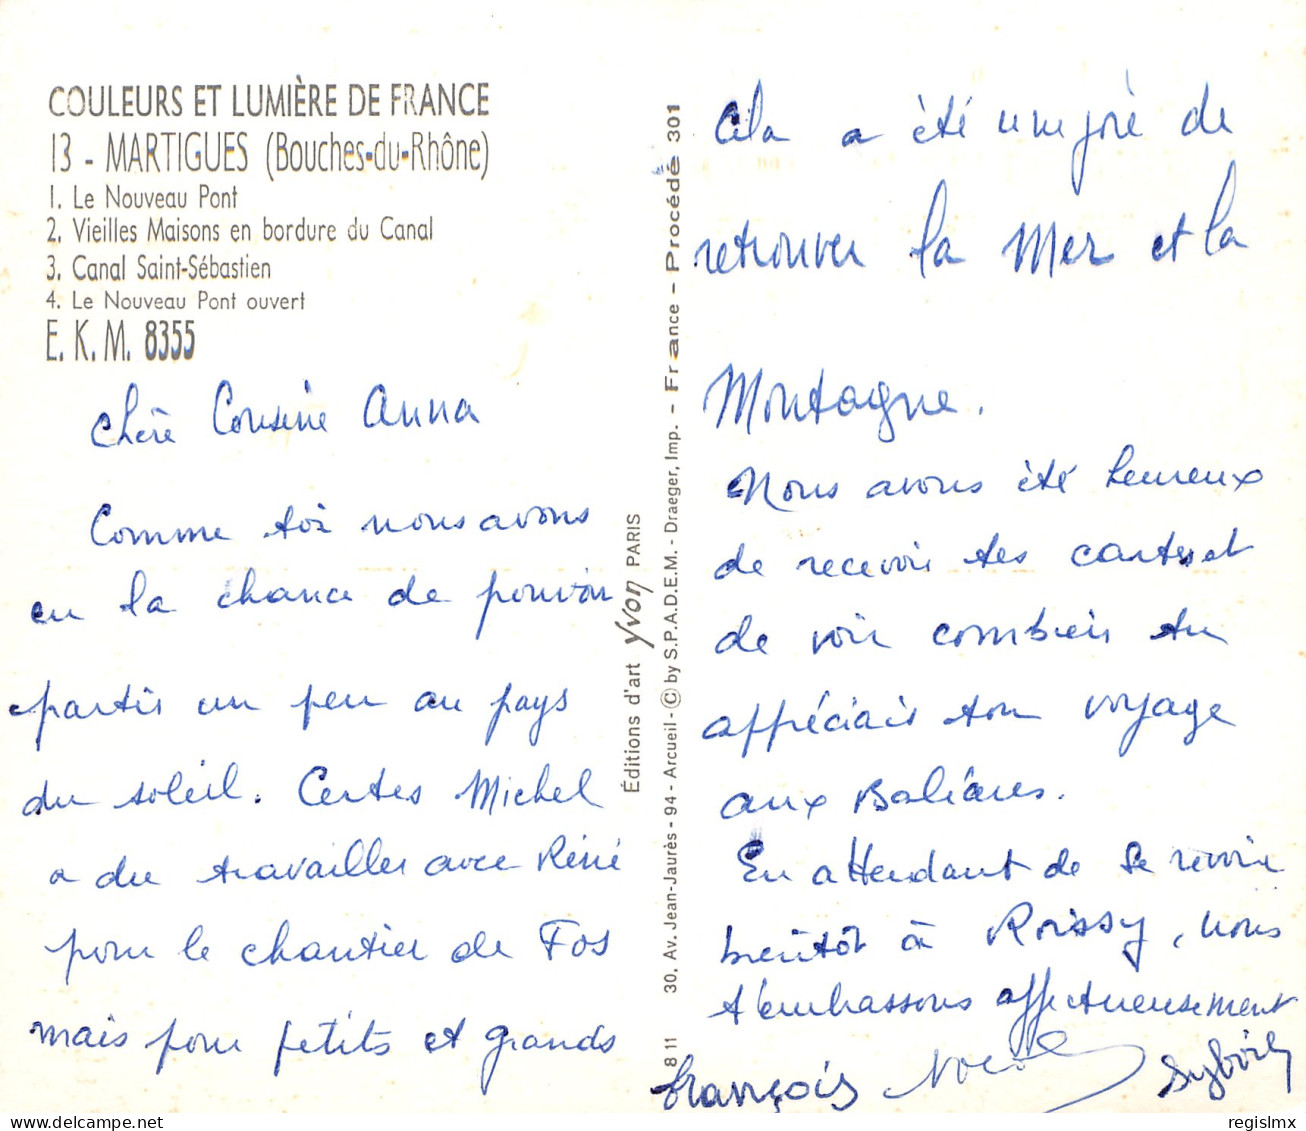 COULEURS ET LUMIÈRE DE FRANCE
13 - MARTIGUES (Bouches-du-Rhône)
1. Le Nouveau Pont
2. Vieilles Maisons en bordure du Canal
3. Canal Saint-Sébastien
4. Le Nouveau Pont ouvert
E. K. M. 8355
Chère Cousine Anna
Comme toi nous avons
eu la chance de pouvoir
partir un peu au pays
du soleil. Certes Michel
a du travailler avec Réné
pour le chantier de Fos
mais pour petits et grands
Éditions d'art Yvon PARIS
8 11 30, Av. Jean-Jaurès - 94 - Arcueil - © by S.P.A.D.E.M. - Draeger, Imp. - France - Procédé 301
Cela a été une joie de
retrouver la Mer et la
Montagne.
Nous avons été heureux
de recevoir tes cartes et
de voir combien tu
appréciais ton voyage
aux Baléares.
En attendant de se revoir
bientôt à Roissy, nous
t'embrassons affectueusement
François Sylvie
regislmx